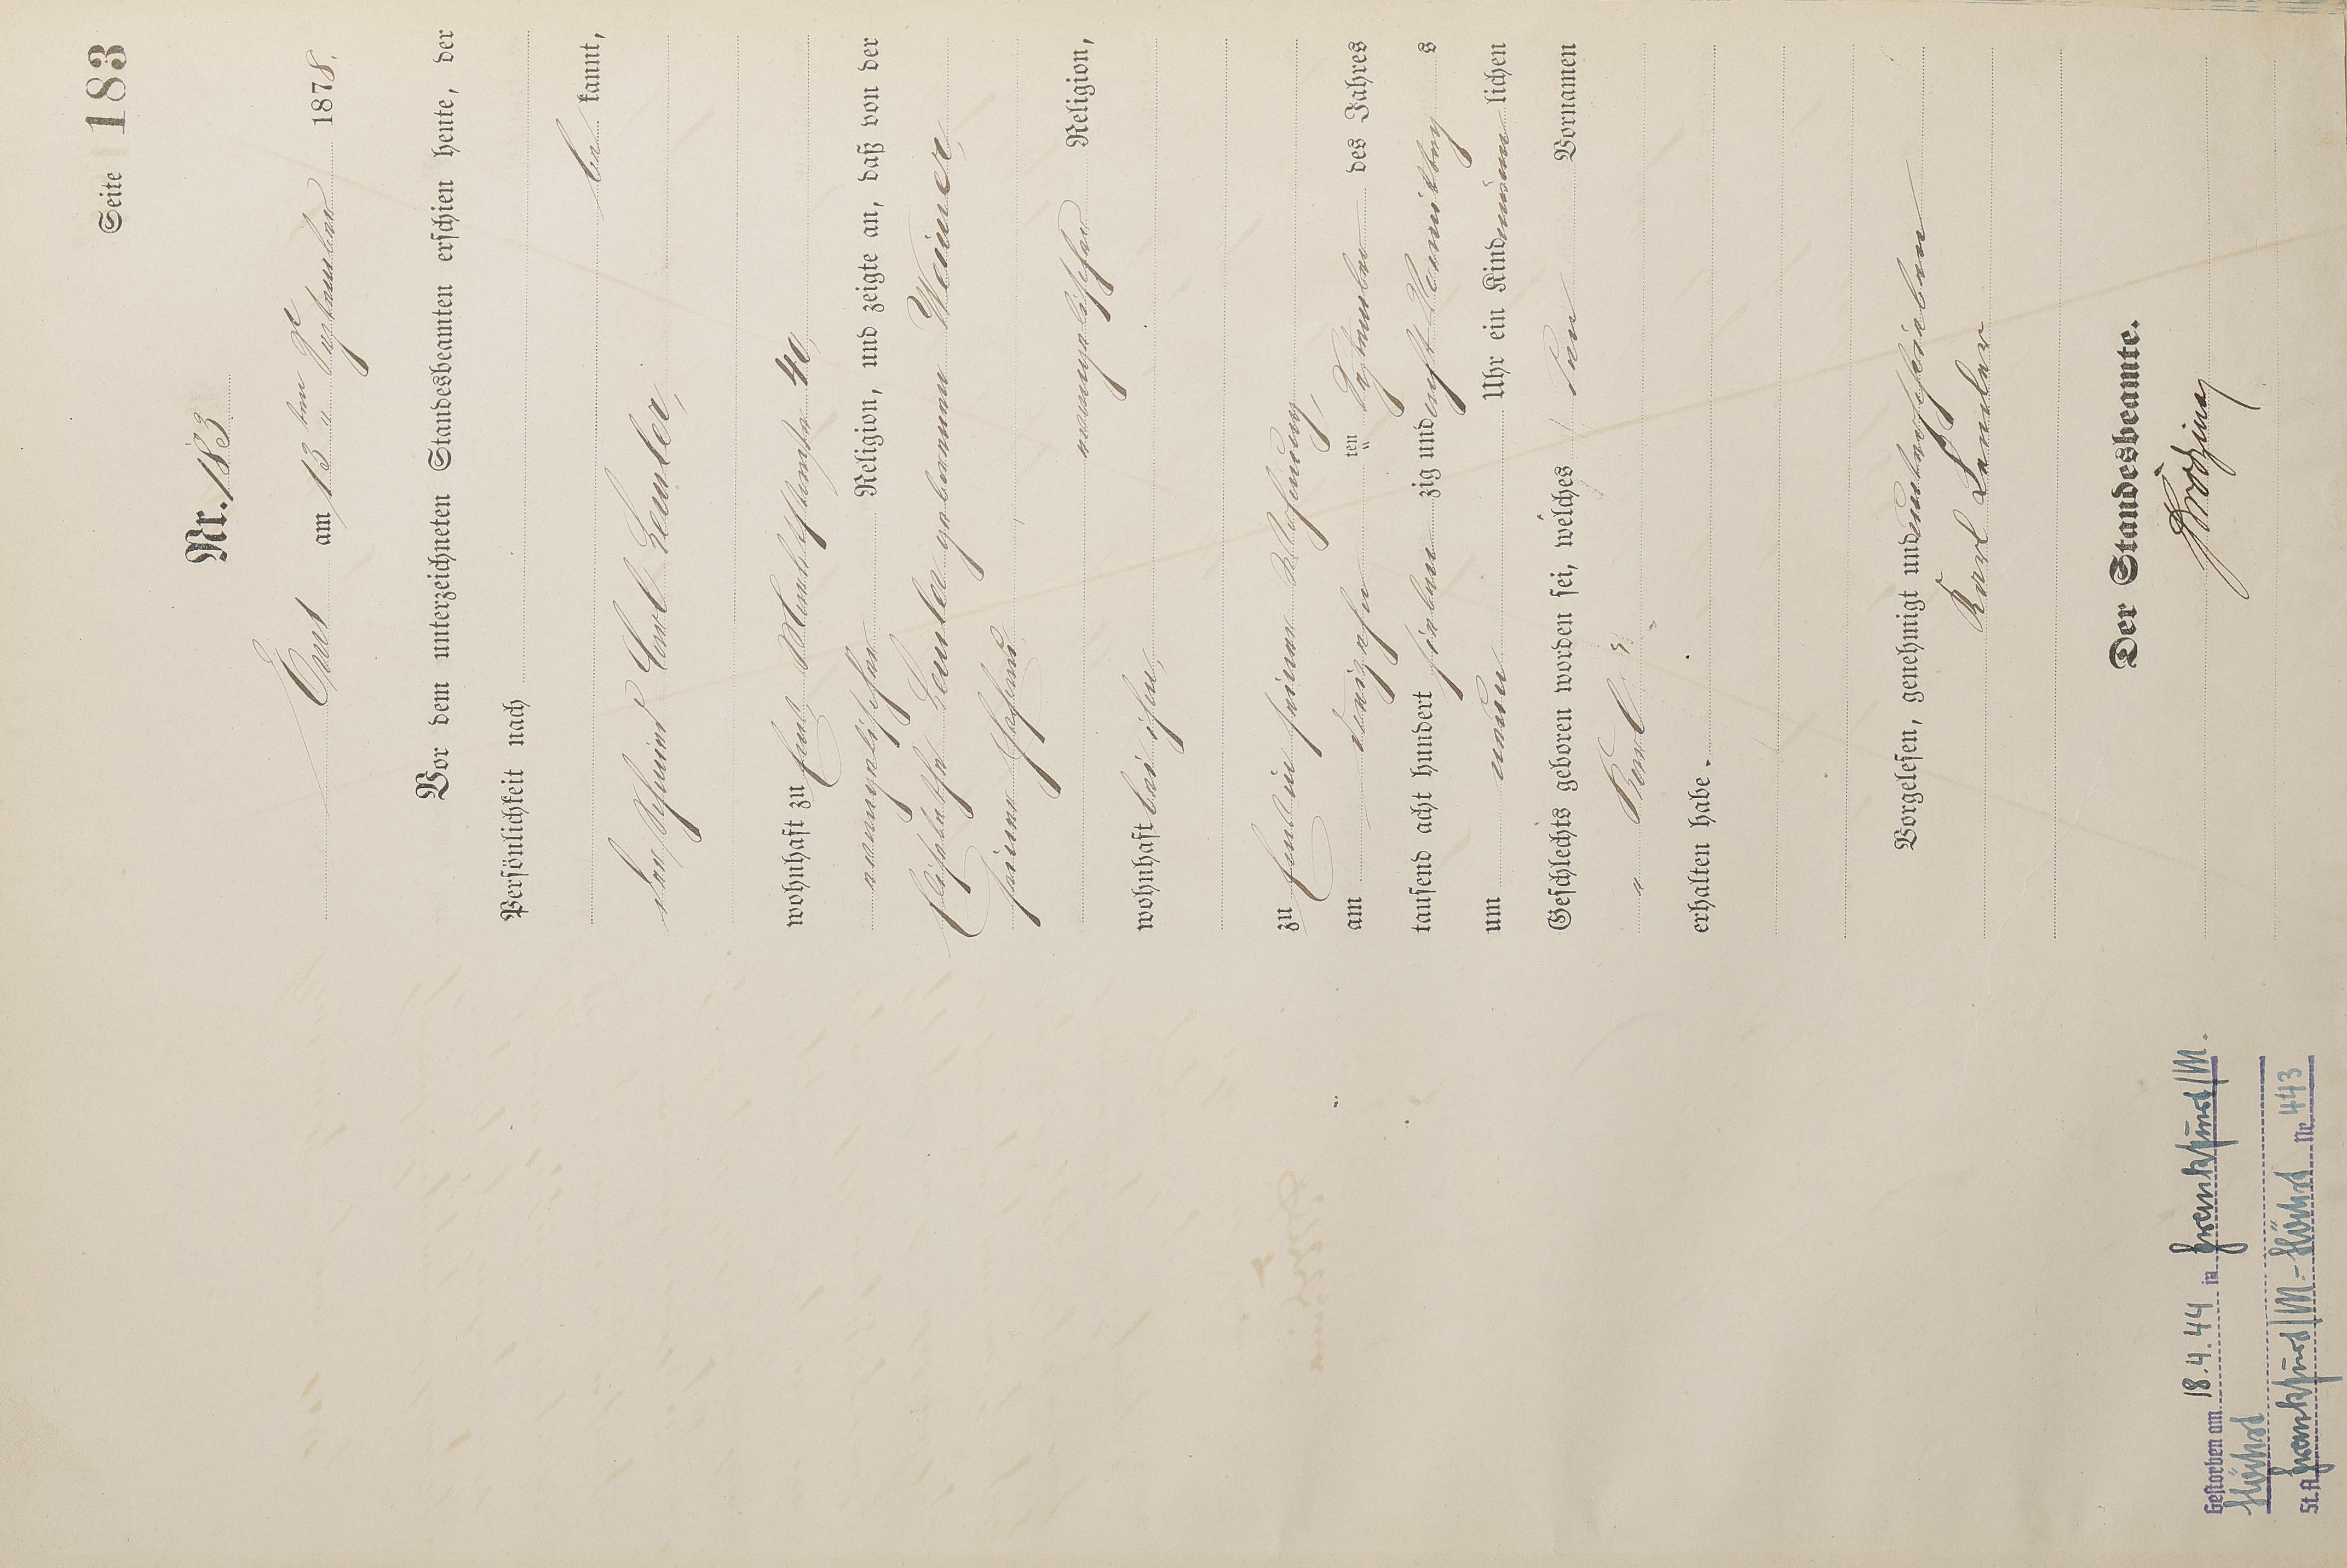 Seite 183
Nr. 183
Ems am 13ten September 1878.
Vor dem unterzeichneten Standesbeamten erschien heute, der
Persönlichkeit nach
be kannt,
der Schmied Carl Lauter,
wohnhaft zu Ems 40,
evangelischer Religion, und zeigte an, daß von der
Elisabethe Lauter geborenen Weimer,
seiner Ehefrau
evangelischer Religion,
wohnhaft bei ihm,
zu Ems in seiner Wohnung,
am ten September des Jahres
tausend acht hundert sieben zig und acht s
um neun Uhr ein Kind männ lichen
Geschlechts geboren worden sei, welches den Vornamen
Karl
erhalten habe.
Vorgelesen, genehmigt und unterschrieben
Karl Lauter
Der Standesbeamte.
Gestorben am 18.4.44 in Frankfurt/M.
Höchst
St.A. Frankfurt/M.-Höchst Nr. 443